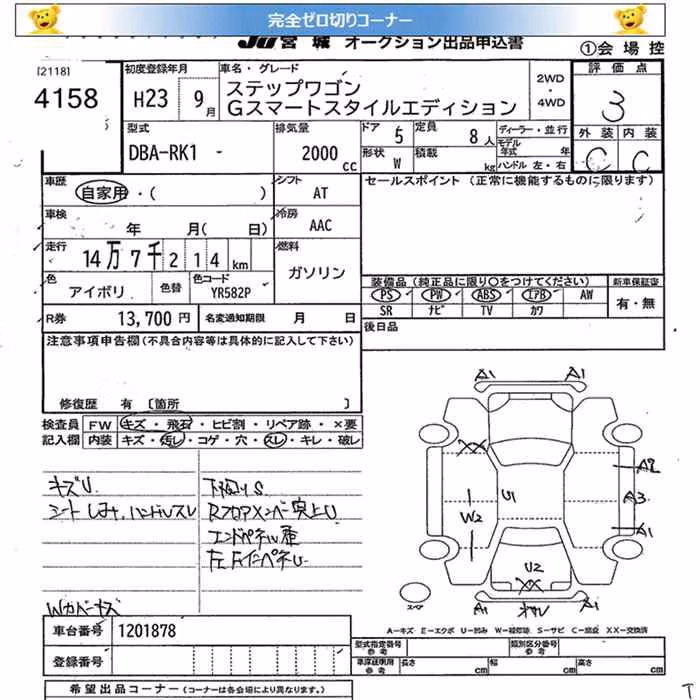 完全ゼロ切りコーナー
JU宮城 オークション出品申込書
①会場控
[2118]
4158
初度登録年月
H23 9月
車名・グレード
ステップワゴン
Gスマートスタイルエディション
2WD
・
4WD
評価点
3
外装 内装
C C
型式
DBA-RK1
排気量
2000cc
ドア 5
定員 8人
形状 W
積載 kg
ディーラー・並行
モデル年式 年
ハンドル 左・右
車歴
自家用・( )
シフト AT
セールスポイント (正常に機能するものに限ります)
車検
年 月( 日)
冷房 AAC
走行
14万7千214km
燃料
ガソリン
色 アイボリ
色替
色コード YR582P
装備品 (純正品に限り○をつけてください)
新車保証書
PS PW ABS エアB AW
SR ナビ TV カワ
有・無
R券 13,700円
名変通知期限 月 日
後日品
注意事項申告欄(不具合内容等は具体的に記入して下さい)
修復歴 有 [箇所 ]
検査員 FW キズ・飛石・ヒビ割・リペア跡・×要
記入欄 内装 キズ・汚レ・コゲ・穴・スレ・キレ・破レ
キズU
シートしみ、ハンドルスレ
下回りS
Rフロアメンバー突上U
エンドパネル歪
Wカバーキズ
A1 A1
XX
A2
U1
A3
W2
A1
U2
XX
A1 A1
スペア
A-キズ E-エクボ U-凹み W-補修跡 S-サビ C-腐蝕 XX-交換済
車台番号 1201878
登録番号
型式指定番号 参考
類別区分番号 参考
車庫証明用 参考 長さ cm 幅 cm 高さ cm
希望出品コーナー (コーナーは各会場により異なります。)